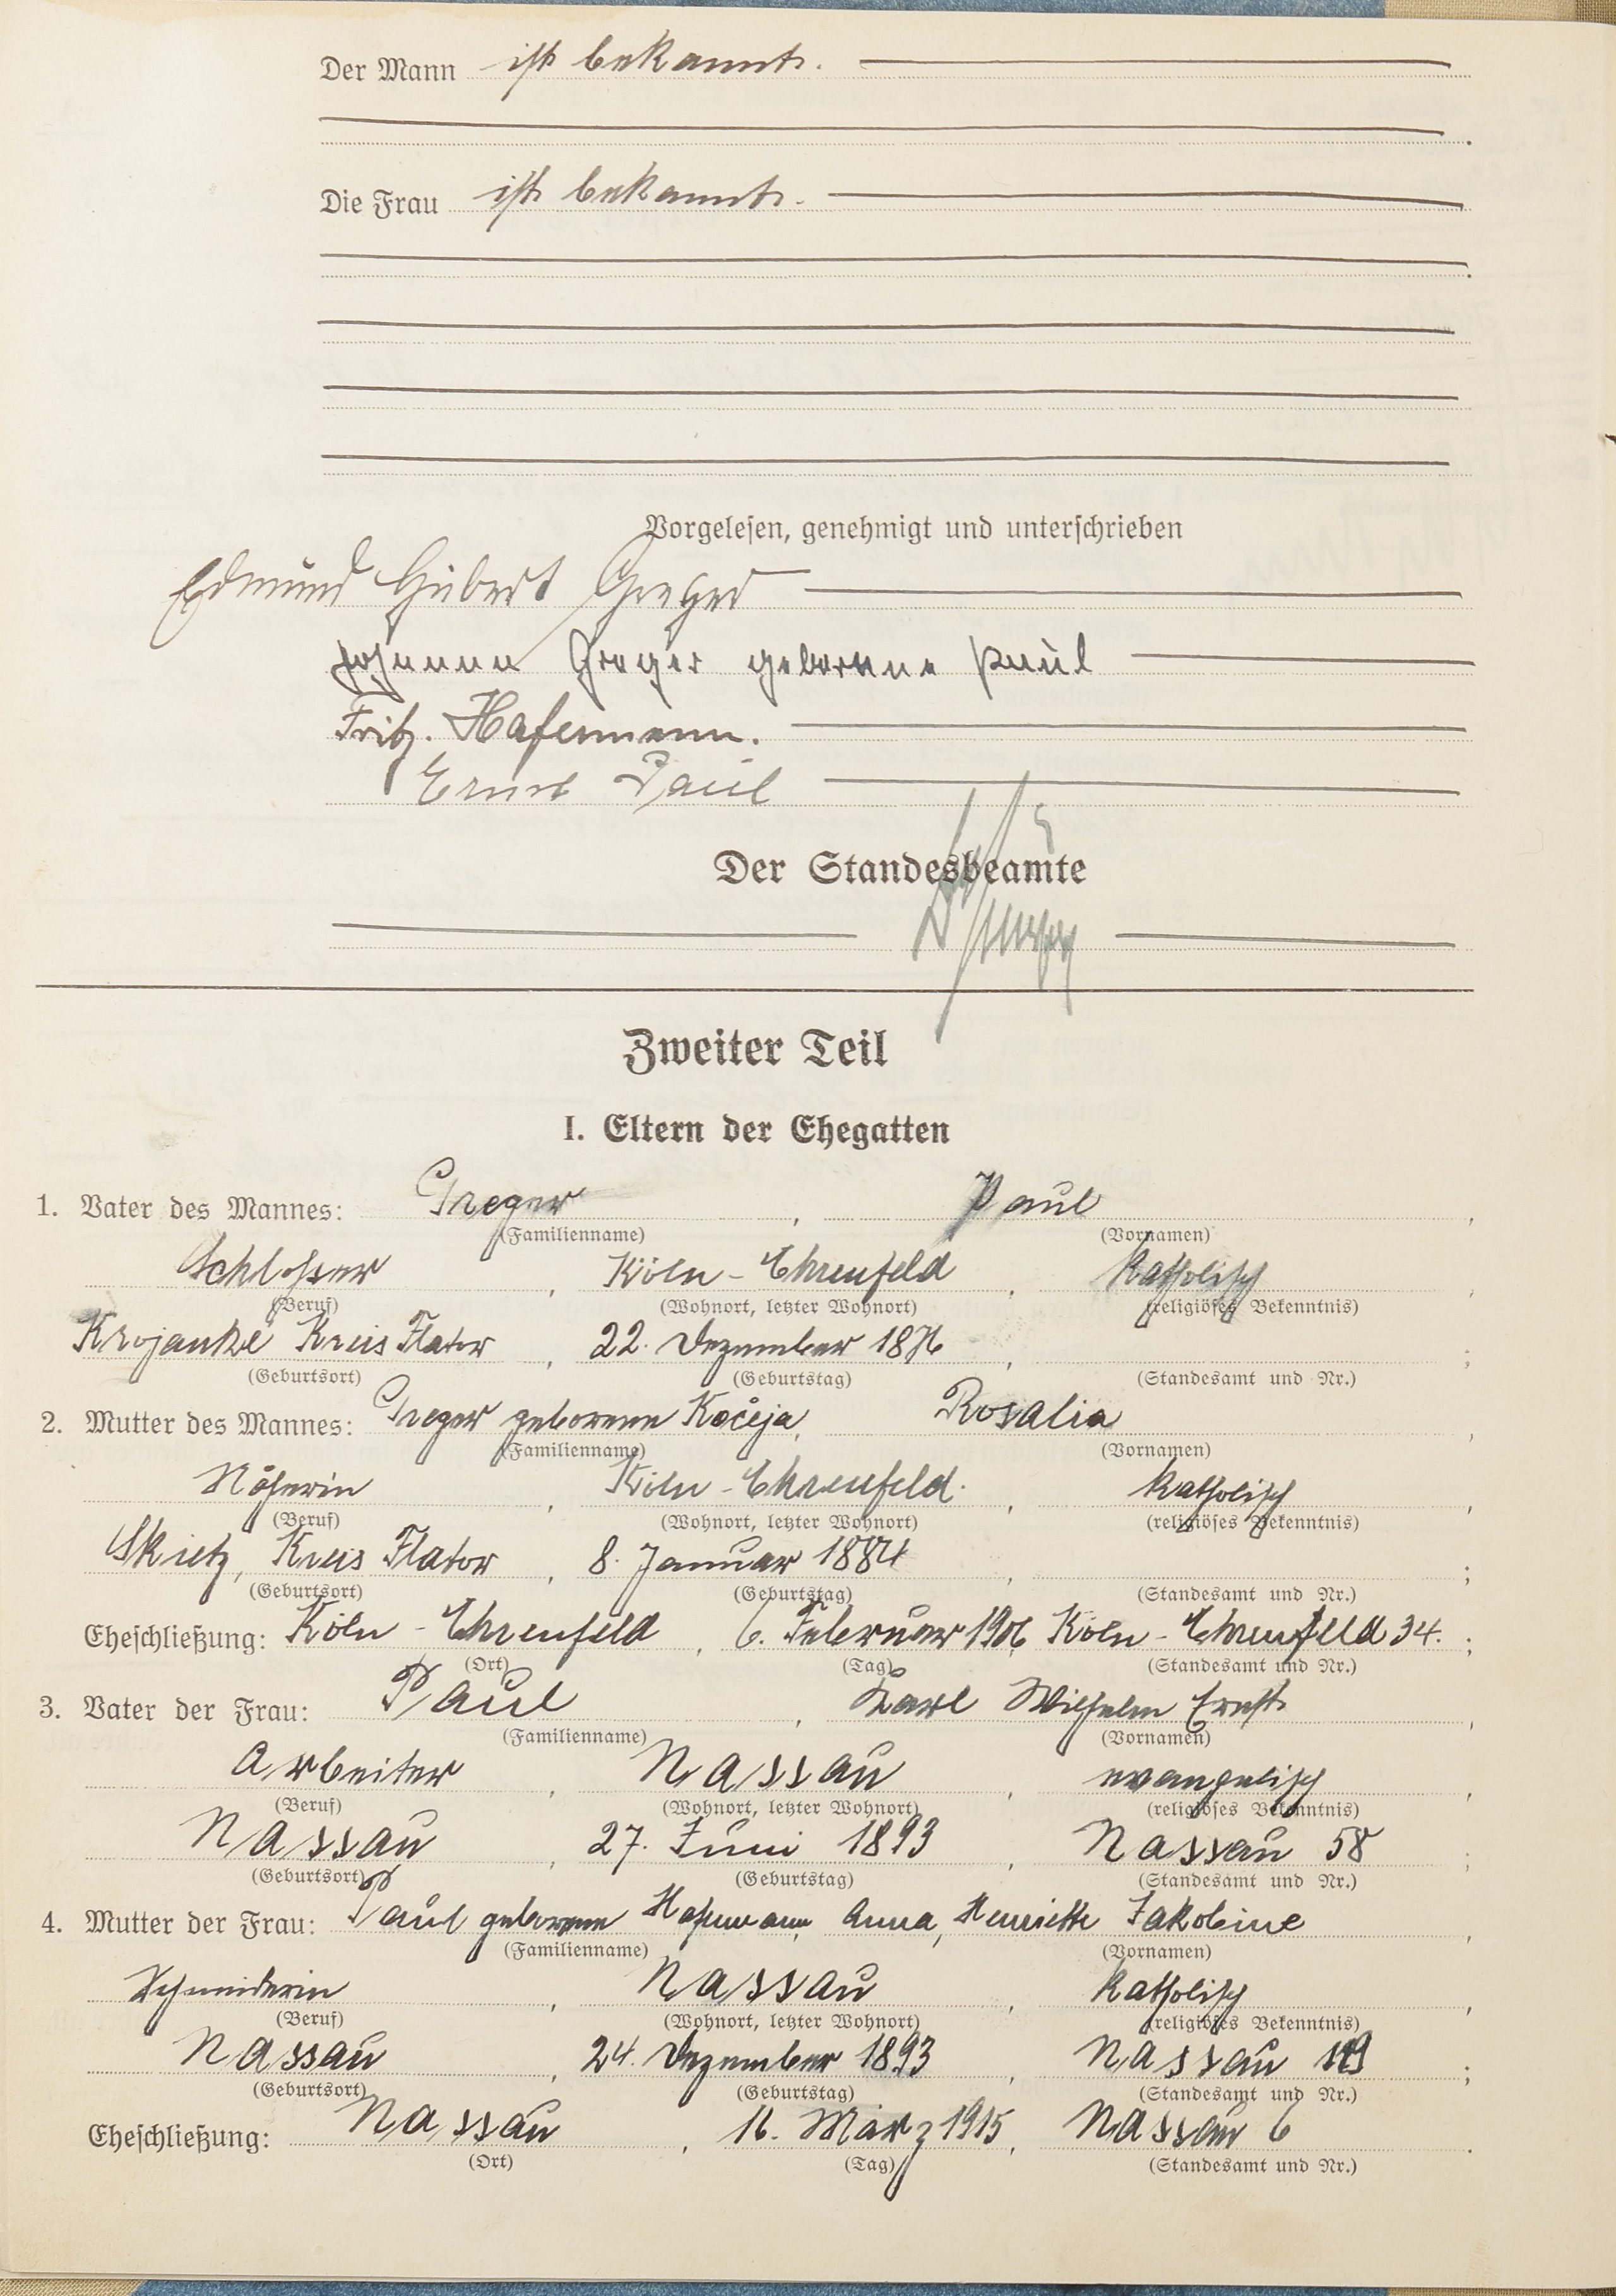 Der Mann ist bekannt.
Die Frau ist bekannt.
Vorgelesen, genehmigt und unterschrieben
Edmund Hubert Greger
Johanna Greger geborene Paul
Fritz. Hafermann.
Ernst Paul
Der Standesbeamte
Zweiter Teil
I. Eltern der Ehegatten
1. Vater des Mannes: Greger, Paul,
(Familienname) (Vornamen)
Schlosser, Köln-Ehrenfeld, katholisch,
(Beruf) (Wohnort, letzter Wohnort) (religiöses Bekenntnis)
Krojanke Kreis Flatow, 22. Dezember 1876, ;
(Geburtsort) (Geburtstag) (Standesamt und Nr.)
2. Mutter des Mannes: Greger geborene, Rosalia,
(Familienname) (Vornamen)
Näherin, Köln-Ehrenfeld, katholisch,
(Beruf) (Wohnort, letzter Wohnort) (religiöses Bekenntnis)
Skietz, Kreis Flatow, 8. Januar 1884, ;
(Geburtsort) (Geburtstag) (Standesamt und Nr.)
Eheschließung: Köln-Ehrenfeld, 6. Februar 1906 Köln-Ehrenfeld 34. ;
(Ort) (Tag) (Standesamt und Nr.)
3. Vater der Frau: Paul, Karl Wilhelm Ernst,
(Familienname) (Vornamen)
Arbeiter, Nassau, evangelisch,
(Beruf) (Wohnort, letzter Wohnort) (religiöses Bekenntnis)
Nassau, 27. Juni 1893, Nassau 58 ;
(Geburtsort) (Geburtstag) (Standesamt und Nr.)
4. Mutter der Frau: Paul geborene, Anna, Henriette Jakobine,
(Familienname) (Vornamen)
Schneiderin, Nassau, katholisch,
(Beruf) (Wohnort, letzter Wohnort) (religiöses Bekenntnis)
Nassau, 24. Dezember 1893, Nassau ;
(Geburtsort) (Geburtstag) (Standesamt und Nr.)
Eheschließung: Nassau, 16. März 1915, Nassau 6.
(Ort) (Tag) (Standesamt und Nr.)